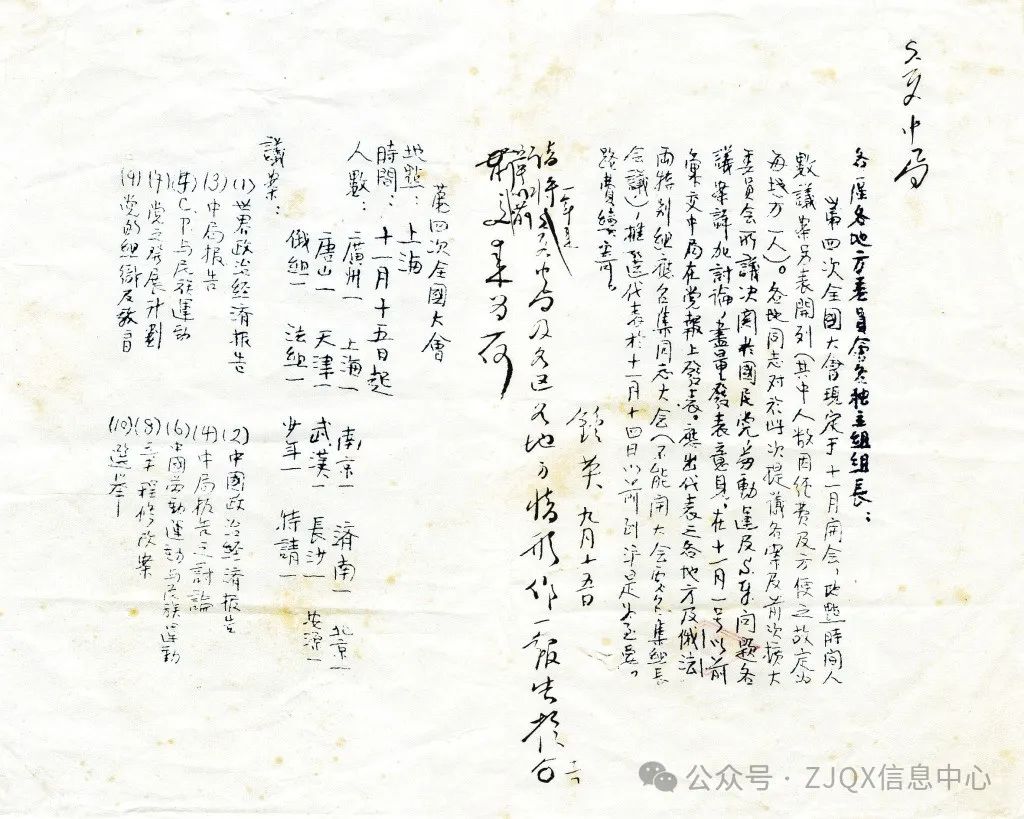 各區各地方委員會各独立組組長：
第四次全國大會現定于十一月開会，地點時間人
數議案另表開列（其中人數因经费及方便之故定为
每地方一人）。各地同志对於此次提議各案及前次扩大
委员会所議決関於國民党劳動運及S.Y.問題各
議案詳加討論，盡量發表意見，在十一月一号以前
彙交中局在党報上發表。應出代表之各地方及俄法
兩特别組應召集同志大会（不能開大会要召集組長
会議），推選代表於十一月十四日以前到沪是为至要。
路費續寄。
鍾英 九月十五日
中局及各区各地方情形作一報告
第四次全國大會
地點：上海
時間：十一月十五日起
人數：廣州一 上海一 南京一 濟南一 北京一
唐山一 天津一 武漢一 長沙一 安源一
俄組一 法組一 少年一 特請一
議案：
(1) 世界政治經濟報告 (2) 中國政治經濟報告
(3) 中局報告 (4) 中局報告之討論
(5) C.P.与民族運動 (6) 中國勞動運動与民族運動
(7) 党之發展計劃 (8) 三本程修改案
(9) 党的組織及教育 (10) 選舉
公众号 · ZJQX信息中心